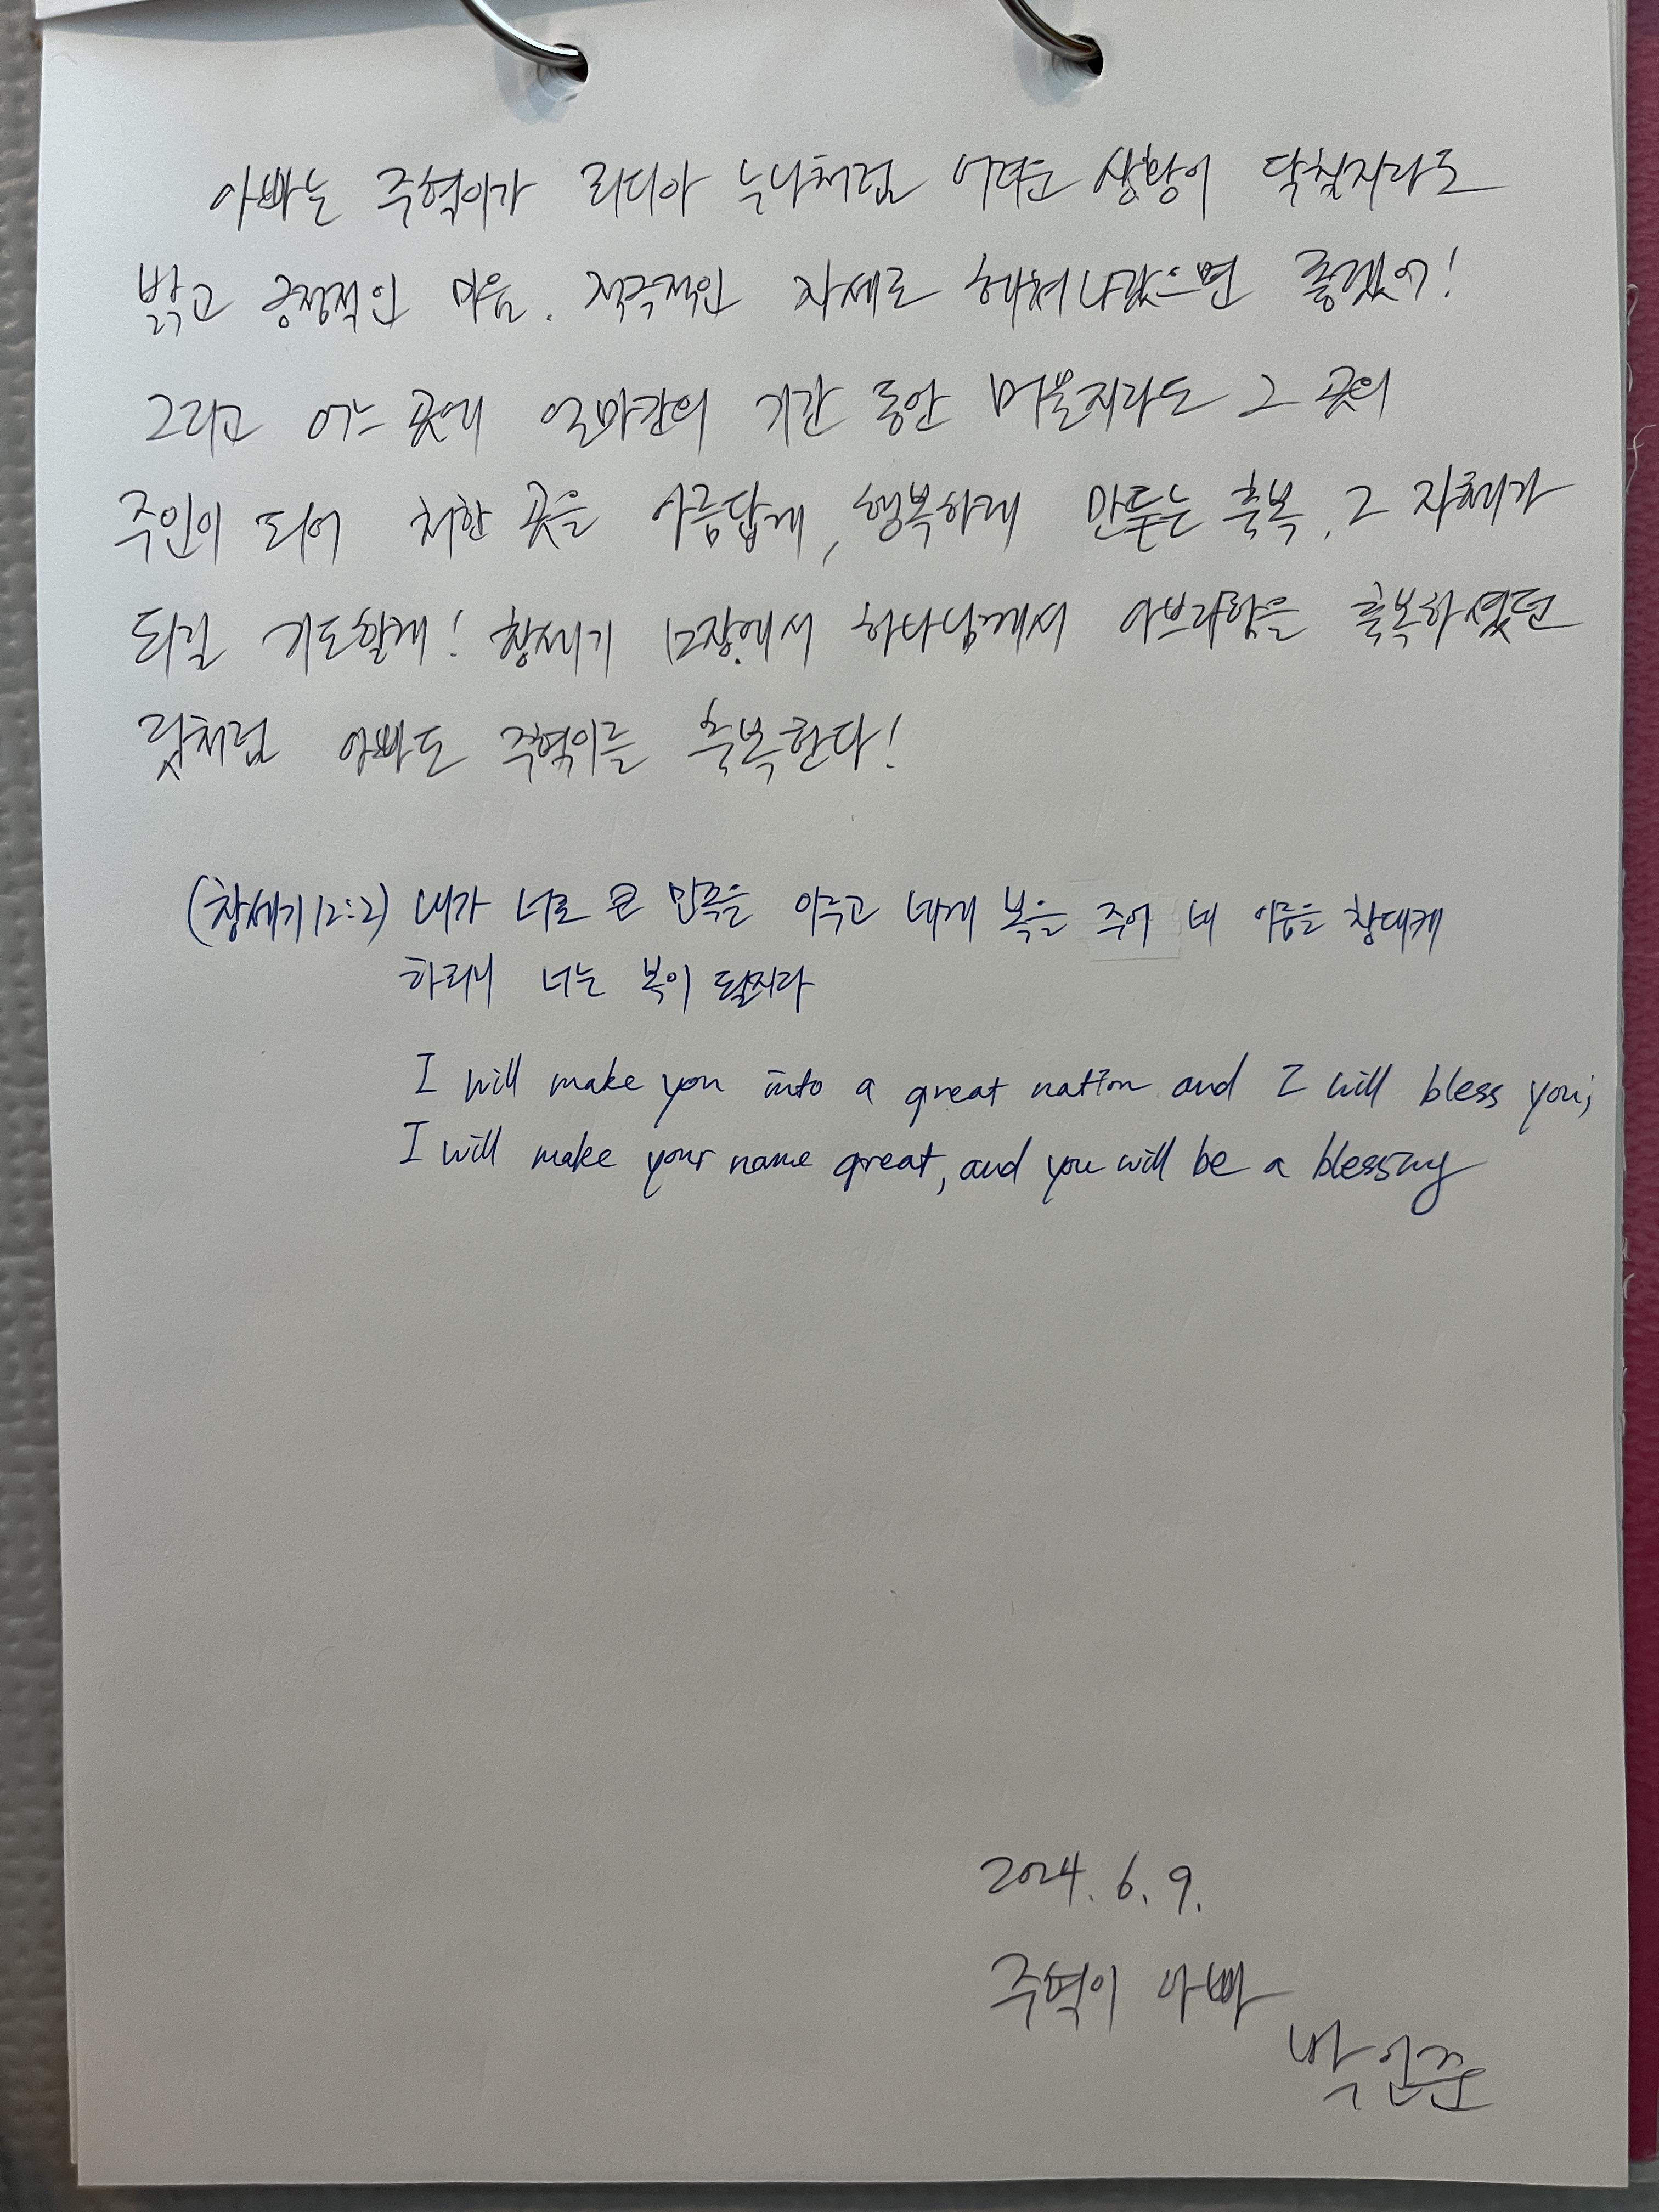 아빠는 주혁이가 리디아 누나처럼 어려운 상황이 닥칠지라도
밝고 긍정적인 마음. 적극적인 자세로 헤쳐나갔으면 좋겠어!
그리고 어느 곳에 얼마간의 기간 동안 머물지라도 그 곳의
주인이 되어 처한 곳을 아름답게, 행복하게 만드는 축복, 그 자체가
되길 기도할게! 창세기 12장에서 하나님께서 아브라함을 축복하셨던
것처럼 아빠도 주혁이를 축복한다!
(창세기 12:2) 내가 너로 큰 민족을 이루고 네게 복을 주어 네 이름을 창대케
하리니 너는 복이 될지라
I will make you into a great nation and I will bless you;
I will make your name great, and you will be a blessing
2024. 6. 9.
주혁이 아빠
박인준